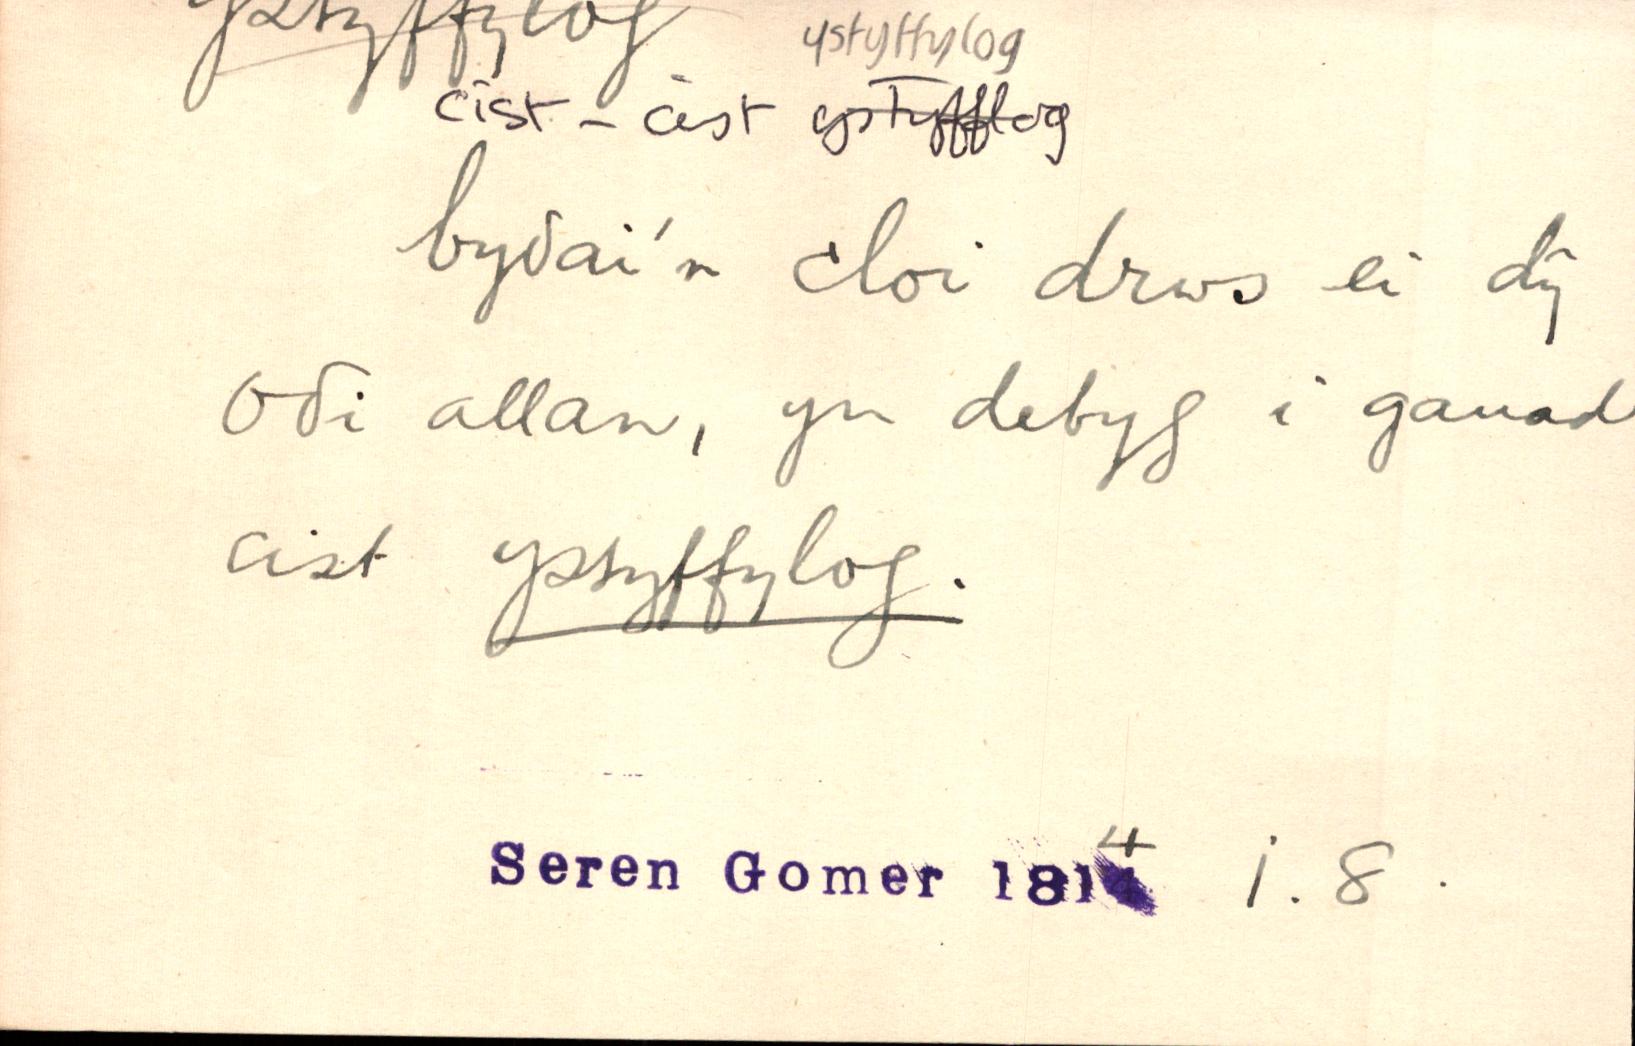 ystyffylog
ystyffylog
cist - cist ystyfflog
byδai'n cloi drws ei dŷ
oδi allan, yn debyg i ganad
cist ystyffylog.
Seren Gomer 1814 i. 8.